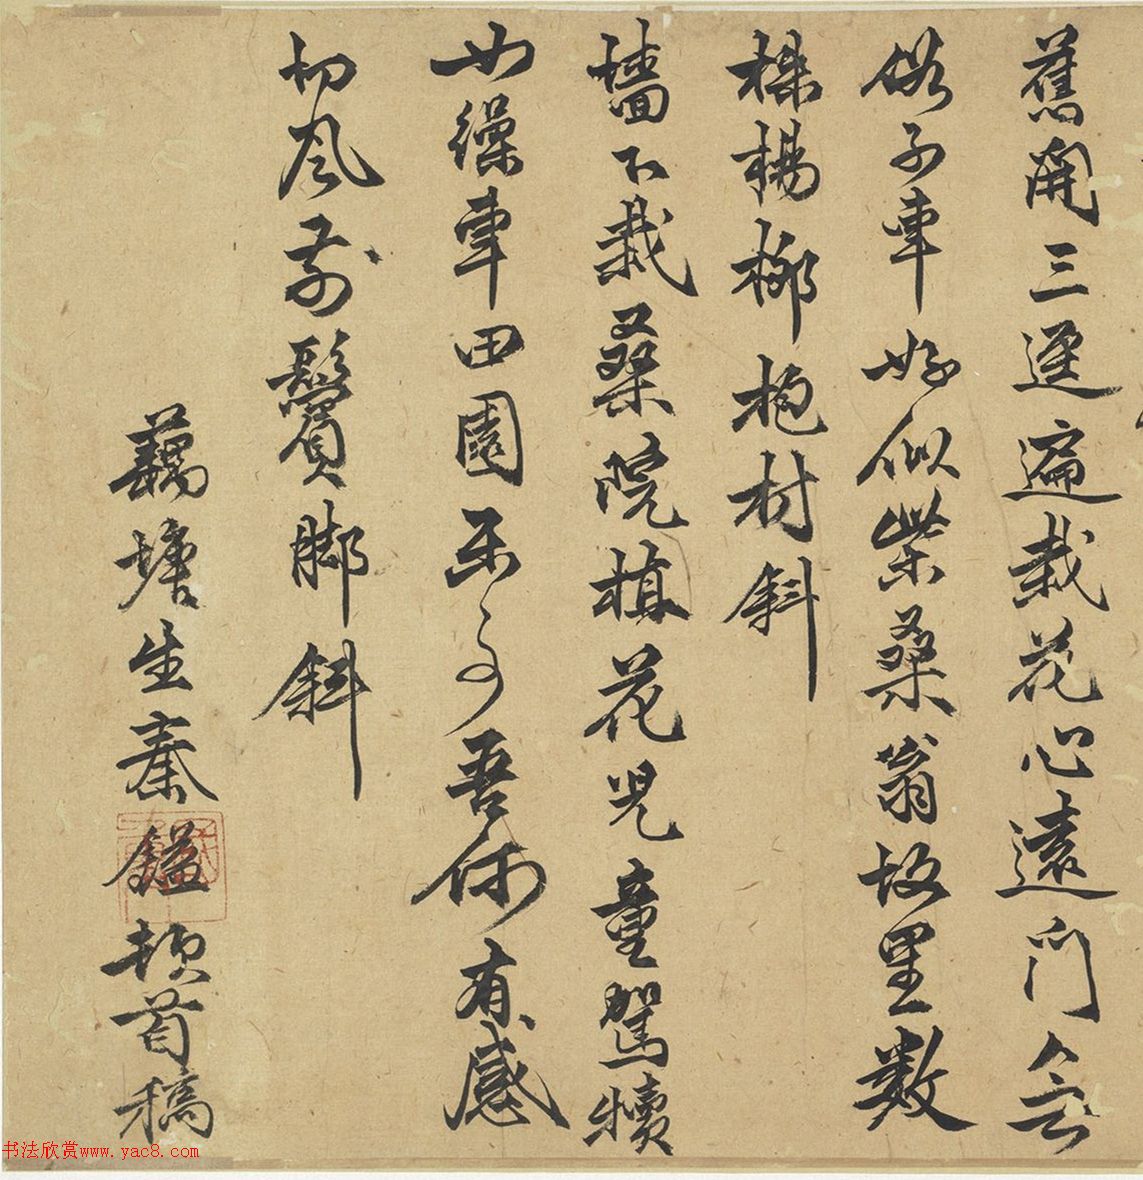 舊開三逕遍栽花心遠門無
俗子車好似柴桑翁故里數
樹楊柳抱村斜
墻下栽桑院植花兒童駕犢
女繰車田園樂事吾何有感
切風前鬢脚斜
藕塘生秦鎰頓首稿
书法欣赏www.yac8.com